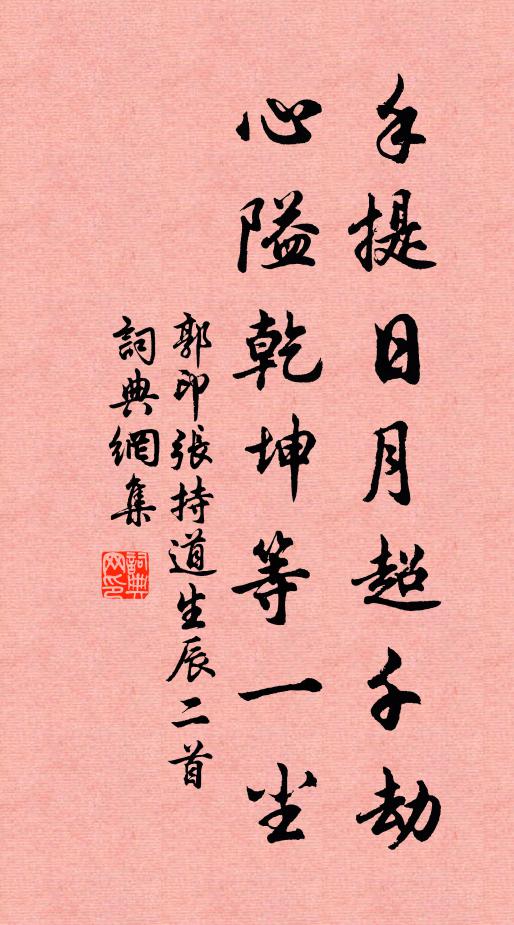 手提日月超千劫
心隘乾坤等一尘
郭印張持道生辰二首
詞典網集
詞典網印